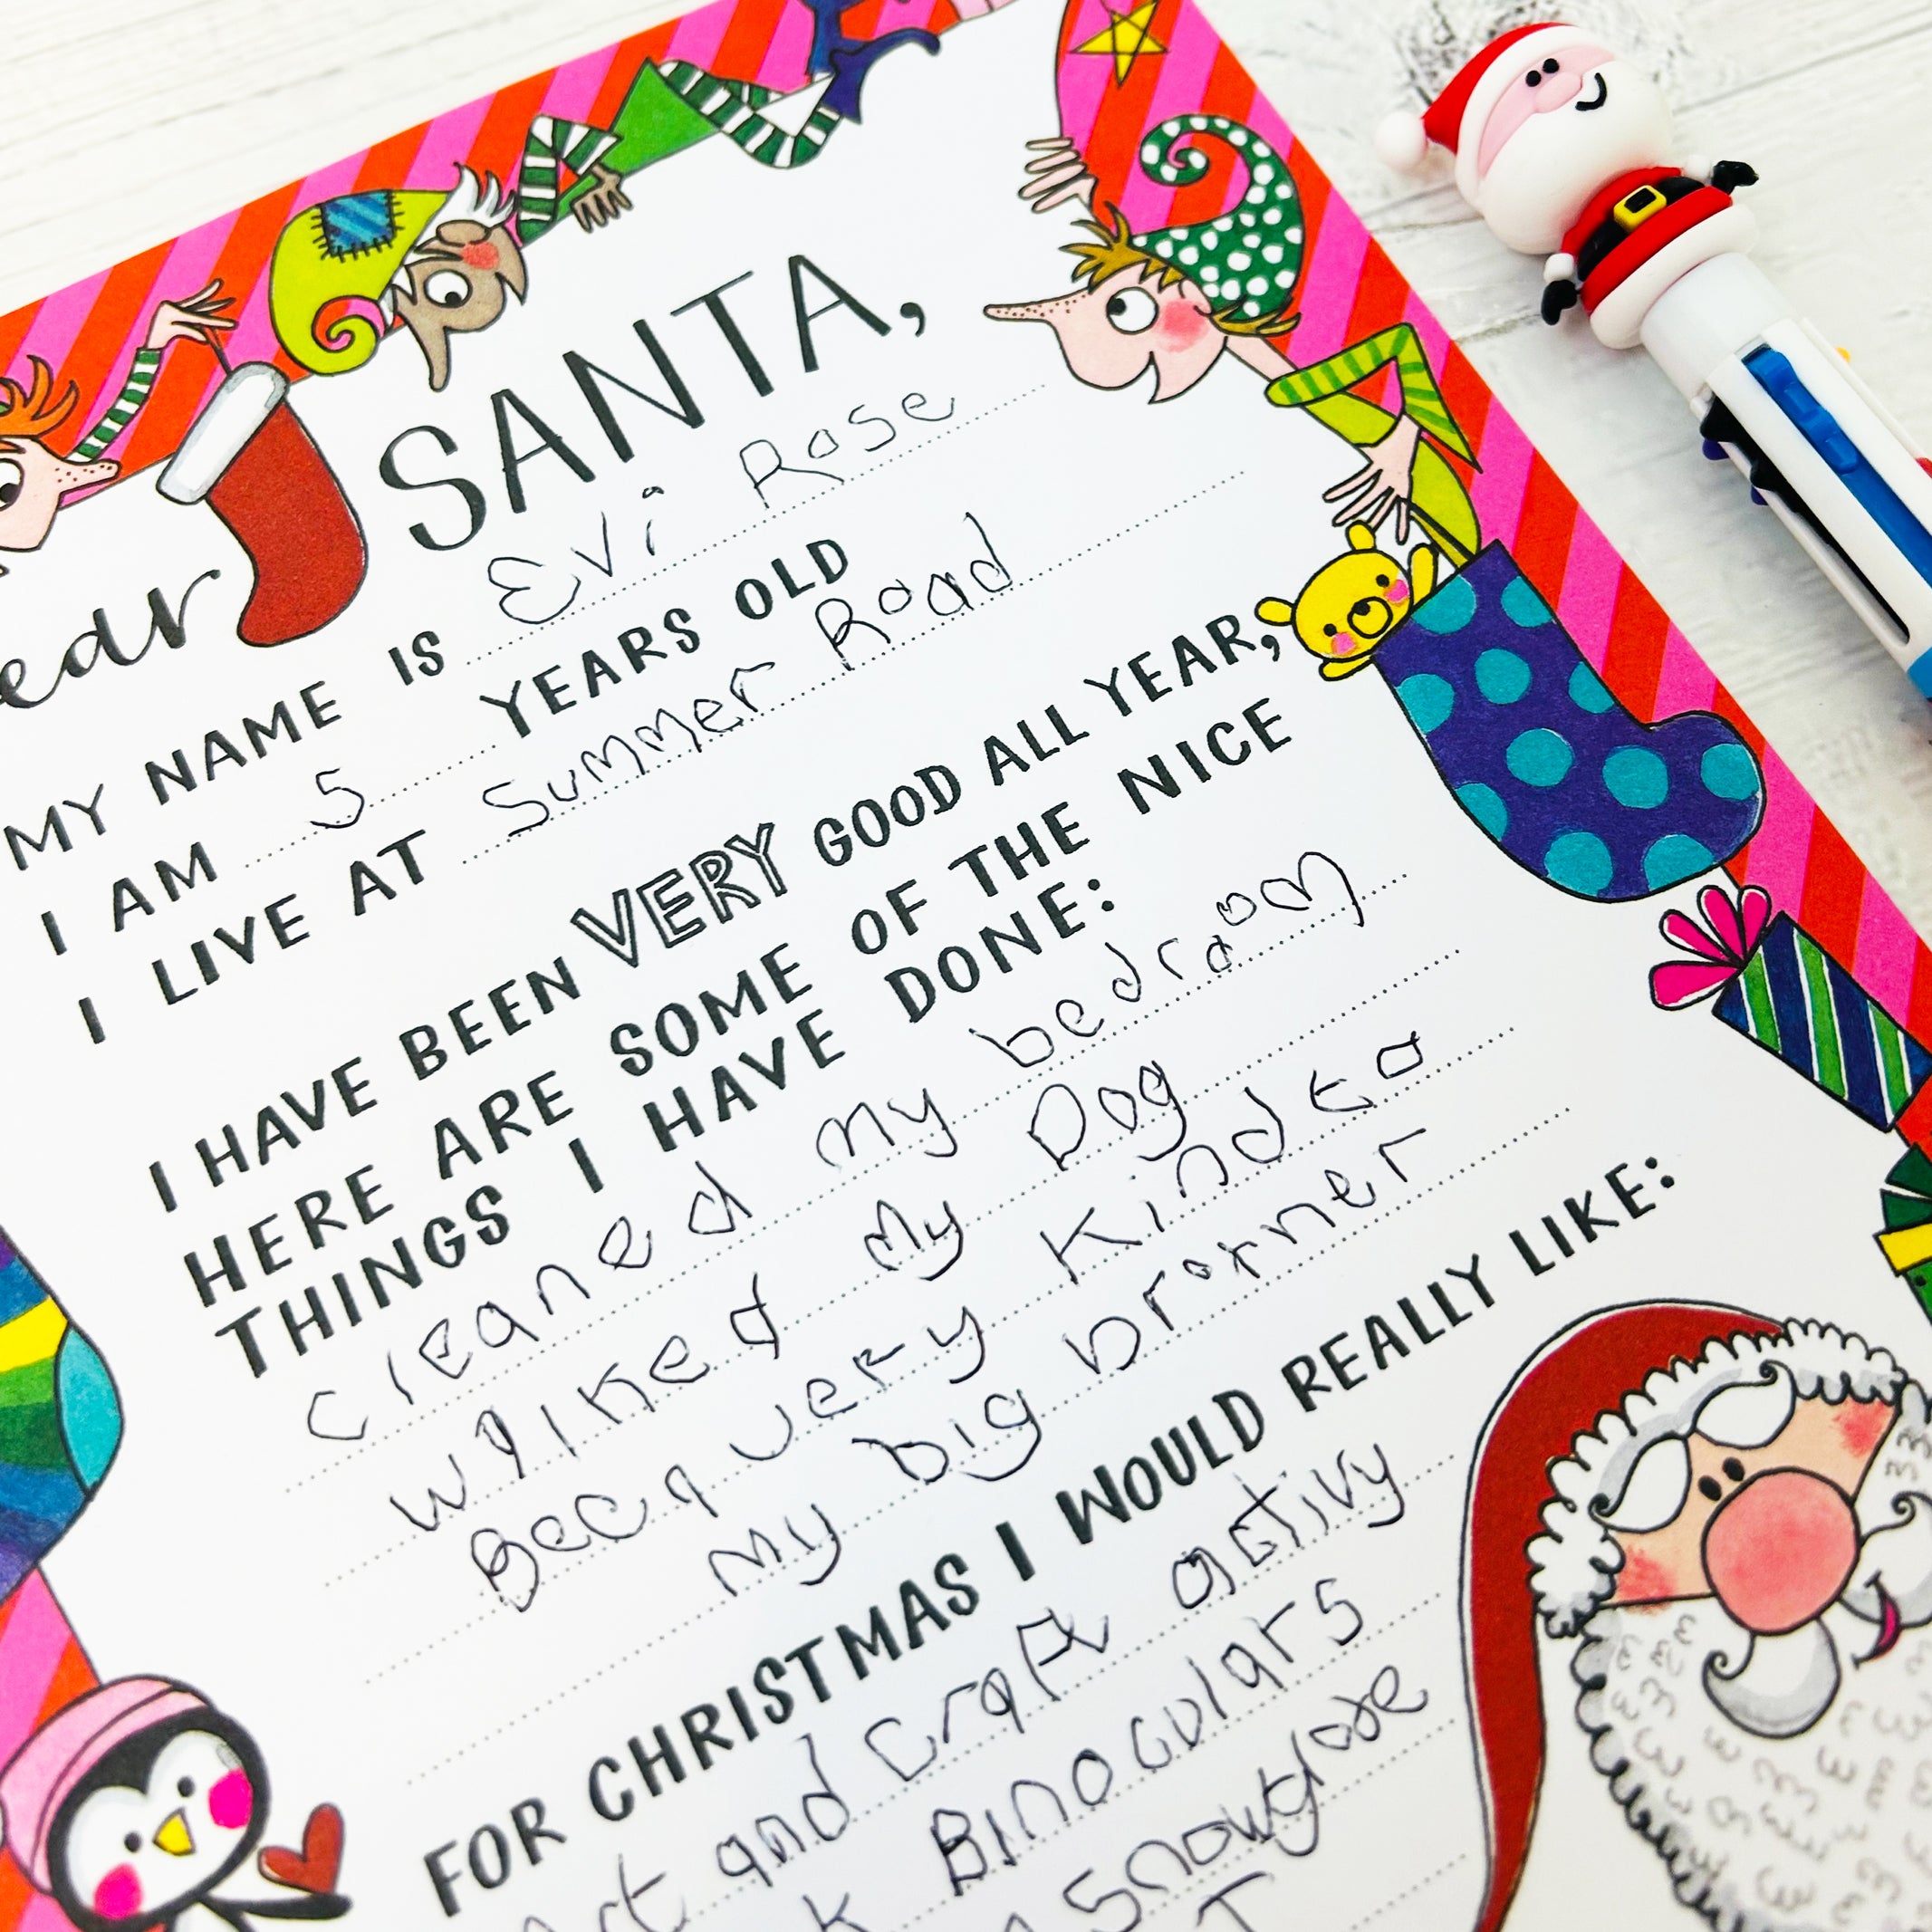 ear SANTA,
MY NAME IS Evi Rose
I AM 5 YEARS OLD
I LIVE AT Summer Road
I HAVE BEEN VERY GOOD ALL YEAR,
HERE ARE SOME OF THE NICE
THINGS I HAVE DONE:
cleaned my bedroom
walked my Dog
Been very Kind to
my big brother
FOR CHRISTMAS I WOULD REALLY LIKE:
Art and craft activy
Binoculars
Snowglobe